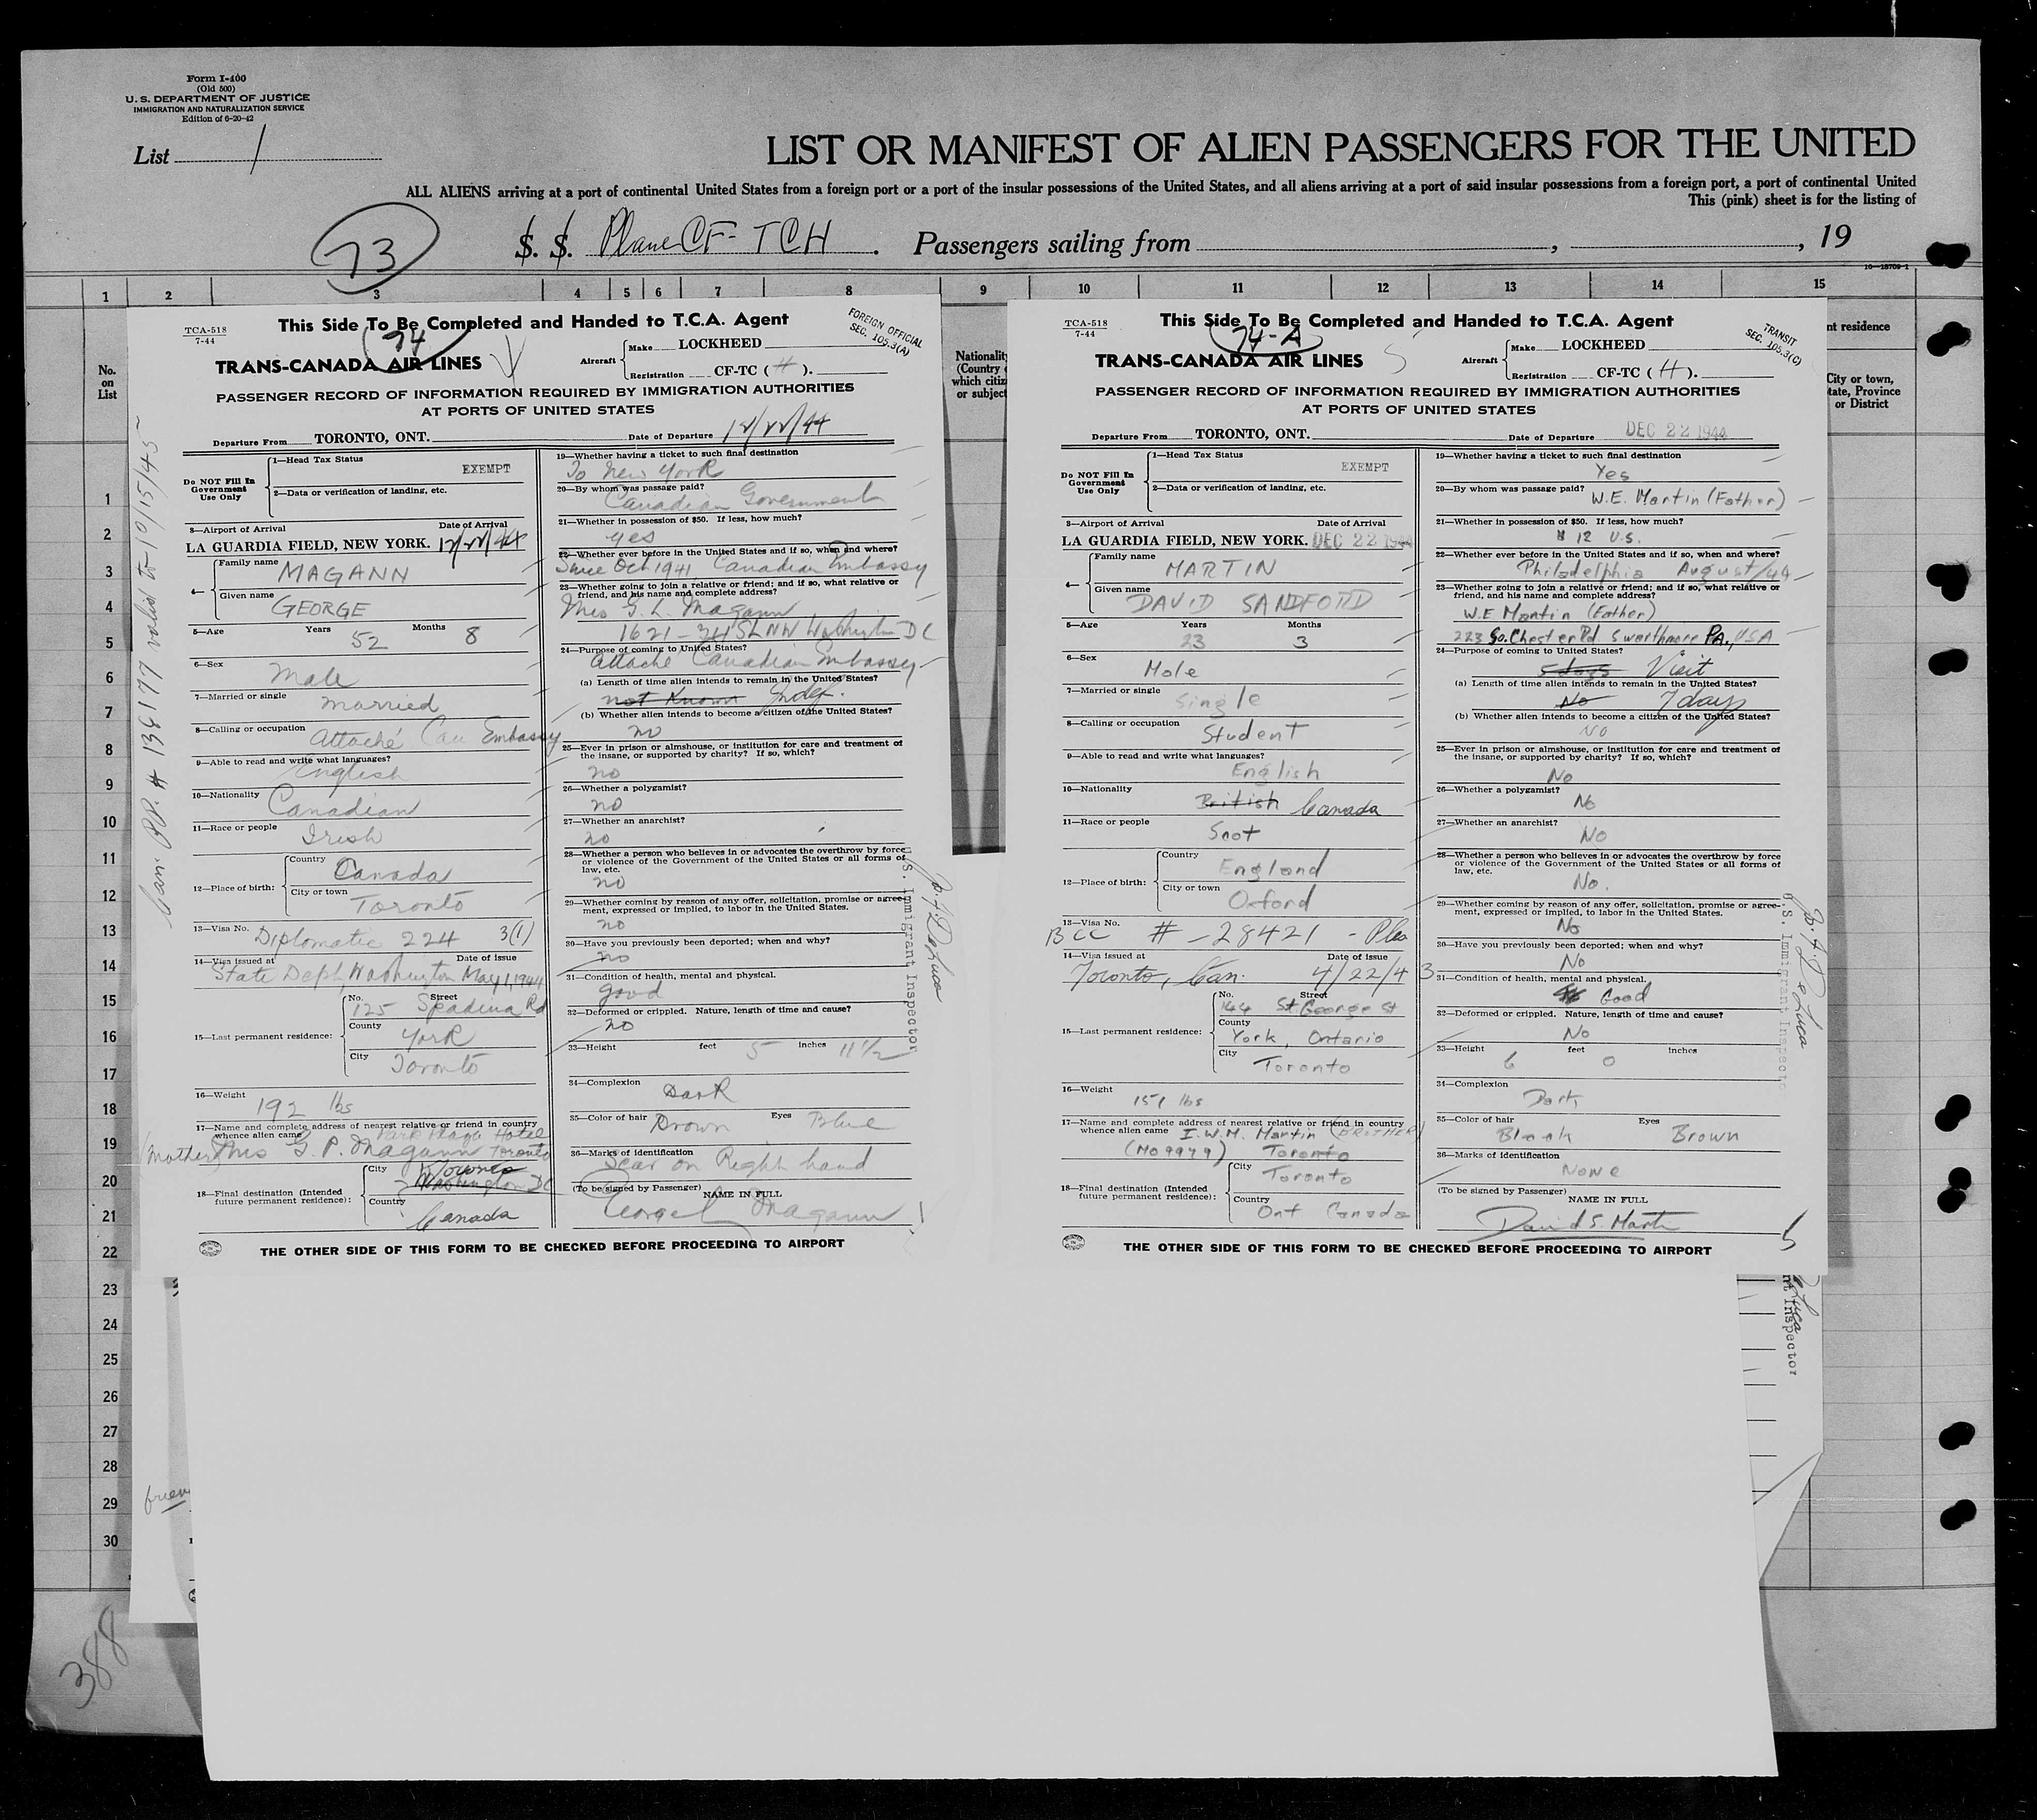 Form I-400
(Old 500)
U. S. DEPARTMENT OF JUSTICE
IMMIGRATION AND NATURALIZATION SERVICE
Edition of 6-20-42
List 1
LIST OR MANIFEST OF ALIEN PASSENGERS FOR THE UNITED
ALL ALIENS arriving at a port of continental United States from a foreign port or a port of the insular possessions of the United States, and all aliens arriving at a port of said insular possessions from a foreign port, a port of continental United
This (pink) sheet is for the listing of
73
S. S. Plane CF-TCH . Passengers sailing from , , 19
16—18709-1
1 2 3 4 5 6 7 8 9 10 11 12 13 14 15
No.
on
List
Nationality
(Country of
which citiz
or subject
nt residence
City or town,
tate, Province
or District
1
2
3
4
5
6
7
8
9
10
11
12
13
14
15
16
17
18
19
20
21
22
23
24
25
26
27
28
29
30
TCA-518
7-44
This Side To Be Completed and Handed to T.C.A. Agent
FOREIGN OFFICIAL
SEC. 105.3(A)
74
TRANS-CANADA AIR LINES
Aircraft
Make LOCKHEED
Registration CF-TC ( H ).
PASSENGER RECORD OF INFORMATION REQUIRED BY IMMIGRATION AUTHORITIES
AT PORTS OF UNITED STATES
Departure From TORONTO, ONT.
Date of Departure 12/22/44
Do NOT Fill In
Government
Use Only
1—Head Tax Status
EXEMPT
2—Data or verification of landing, etc.
3—Airport of Arrival Date of Arrival
LA GUARDIA FIELD, NEW YORK. 12/22/44
4—
Family name
MAGANN
Given name
GEORGE
5—Age Years 52 Months 8
6—Sex
Male
7—Married or single
Married
8—Calling or occupation
Attaché Can Embassy
9—Able to read and write what languages?
English
10—Nationality
Canadian
11—Race or people
Irish
12—Place of birth:
Country
Canada
City or town
Toronto
13—Visa No. Diplomatic 224 3(1)
14—Visa issued at Date of issue
State Dept, Washington May 1, 1944
15—Last permanent residence:
No. Street
125 Spadina Rd
County
York
City
Toronto
16—Weight
192 lbs
17—Name and complete address of nearest relative or friend in country
whence alien came Park Plaza Hotel
(Mother) Mrs G. P. Magann Toronto
18—Final destination (Intended
future permanent residence):
City
Toronto
Washington DC
Country
Canada
19—Whether having a ticket to such final destination
To New York
20—By whom was passage paid?
Canadian Government
21—Whether in possession of $50. If less, how much?
yes
22—Whether ever before in the United States and if so, when and where?
Since Oct 1941 Canadian Embassy
23—Whether going to join a relative or friend; and if so, what relative or
friend, and his name and complete address?
Mrs G. L. Magann
1621-34 St NW Washington DC
24—Purpose of coming to United States?
Attaché Canadian Embassy
(a) Length of time alien intends to remain in the United States?
not Known Indef.
(b) Whether alien intends to become a citizen of the United States?
no
25—Ever in prison or almshouse, or institution for care and treatment of
the insane, or supported by charity? If so, which?
no
26—Whether a polygamist?
no
27—Whether an anarchist?
no
28—Whether a person who believes in or advocates the overthrow by force
or violence of the Government of the United States or all forms of
law, etc.
no
29—Whether coming by reason of any offer, solicitation, promise or agree-
ment, expressed or implied, to labor in the United States.
no
30—Have you previously been deported; when and why?
no
31—Condition of health, mental and physical.
good
32—Deformed or crippled. Nature, length of time and cause?
no
33—Height feet 5 inches 11 1/2
34—Complexion
Dark
35—Color of hair Brown Eyes Blue
36—Marks of identification
Scar on Right hand
(To be signed by Passenger) NAME IN FULL
George L Magann
THE OTHER SIDE OF THIS FORM TO BE CHECKED BEFORE PROCEEDING TO AIRPORT
Can. PP. # 138177 valid to 10/15/45
U.S. Immigrant Inspector
TCA-518
7-44
This Side To Be Completed and Handed to T.C.A. Agent
TRANSIT
SEC. 105.3(C)
74-A
TRANS-CANADA AIR LINES
Aircraft
Make LOCKHEED
Registration CF-TC ( H ).
PASSENGER RECORD OF INFORMATION REQUIRED BY IMMIGRATION AUTHORITIES
AT PORTS OF UNITED STATES
Departure From TORONTO, ONT.
Date of Departure DEC 22 1944
Do NOT Fill In
Government
Use Only
1—Head Tax Status
EXEMPT
2—Data or verification of landing, etc.
3—Airport of Arrival Date of Arrival
LA GUARDIA FIELD, NEW YORK. DEC 22 1944
4—
Family name
MARTIN
Given name
DAVID SANDFORD
5—Age Years 23 Months 3
6—Sex
Male
7—Married or single
Single
8—Calling or occupation
Student
9—Able to read and write what languages?
English
10—Nationality
British Canada
11—Race or people
Scot
12—Place of birth:
Country
England
City or town
Oxford
13—Visa No.
BCC # -28421 -
14—Visa issued at Date of issue
Toronto, Can. 4/22/43
15—Last permanent residence:
No. Street
144 St George St
County
York, Ontario
City
Toronto
16—Weight
151 lbs
17—Name and complete address of nearest relative or friend in country
whence alien came I. W. M. Martin (BROTHER)
(MO 9979) Toronto
18—Final destination (Intended
future permanent residence):
City
Toronto
Country
Ont Canada
19—Whether having a ticket to such final destination
Yes
20—By whom was passage paid?
W.E. Martin (Father)
21—Whether in possession of $50. If less, how much?
$ 12 U.S.
22—Whether ever before in the United States and if so, when and where?
Philadelphia August/44
23—Whether going to join a relative or friend; and if so, what relative or
friend, and his name and complete address?
W.E Martin (Father)
223 So. Chester Rd Swarthmore PA., USA
24—Purpose of coming to United States?
5 days Visit
(a) Length of time alien intends to remain in the United States?
No 7 days
(b) Whether alien intends to become a citizen of the United States?
No
25—Ever in prison or almshouse, or institution for care and treatment of
the insane, or supported by charity? If so, which?
No
26—Whether a polygamist?
No
27—Whether an anarchist?
No
28—Whether a person who believes in or advocates the overthrow by force
or violence of the Government of the United States or all forms of
law, etc.
No.
29—Whether coming by reason of any offer, solicitation, promise or agree-
ment, expressed or implied, to labor in the United States.
No
30—Have you previously been deported; when and why?
No
31—Condition of health, mental and physical.
Good
32—Deformed or crippled. Nature, length of time and cause?
No
33—Height 6 feet 0 inches
34—Complexion
Dark
35—Color of hair Black Eyes Brown
36—Marks of identification
None
(To be signed by Passenger) NAME IN FULL
David S. Martin
THE OTHER SIDE OF THIS FORM TO BE CHECKED BEFORE PROCEEDING TO AIRPORT
U.S. Immigrant Inspector
nt Inspector
388